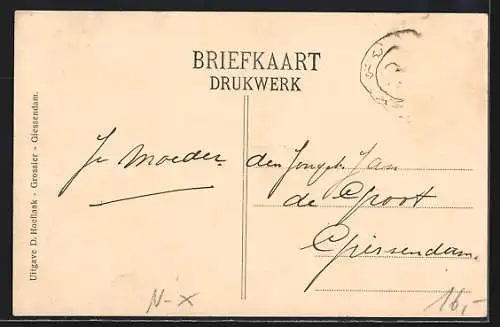 BRIEFKAART
DRUKWERK
Je Moeder.
den Jongeh. Jan
de Groot
Giessendam.
Uitgave D. Hoeflaak - Grossier - Giessendam.
N-X
16,-